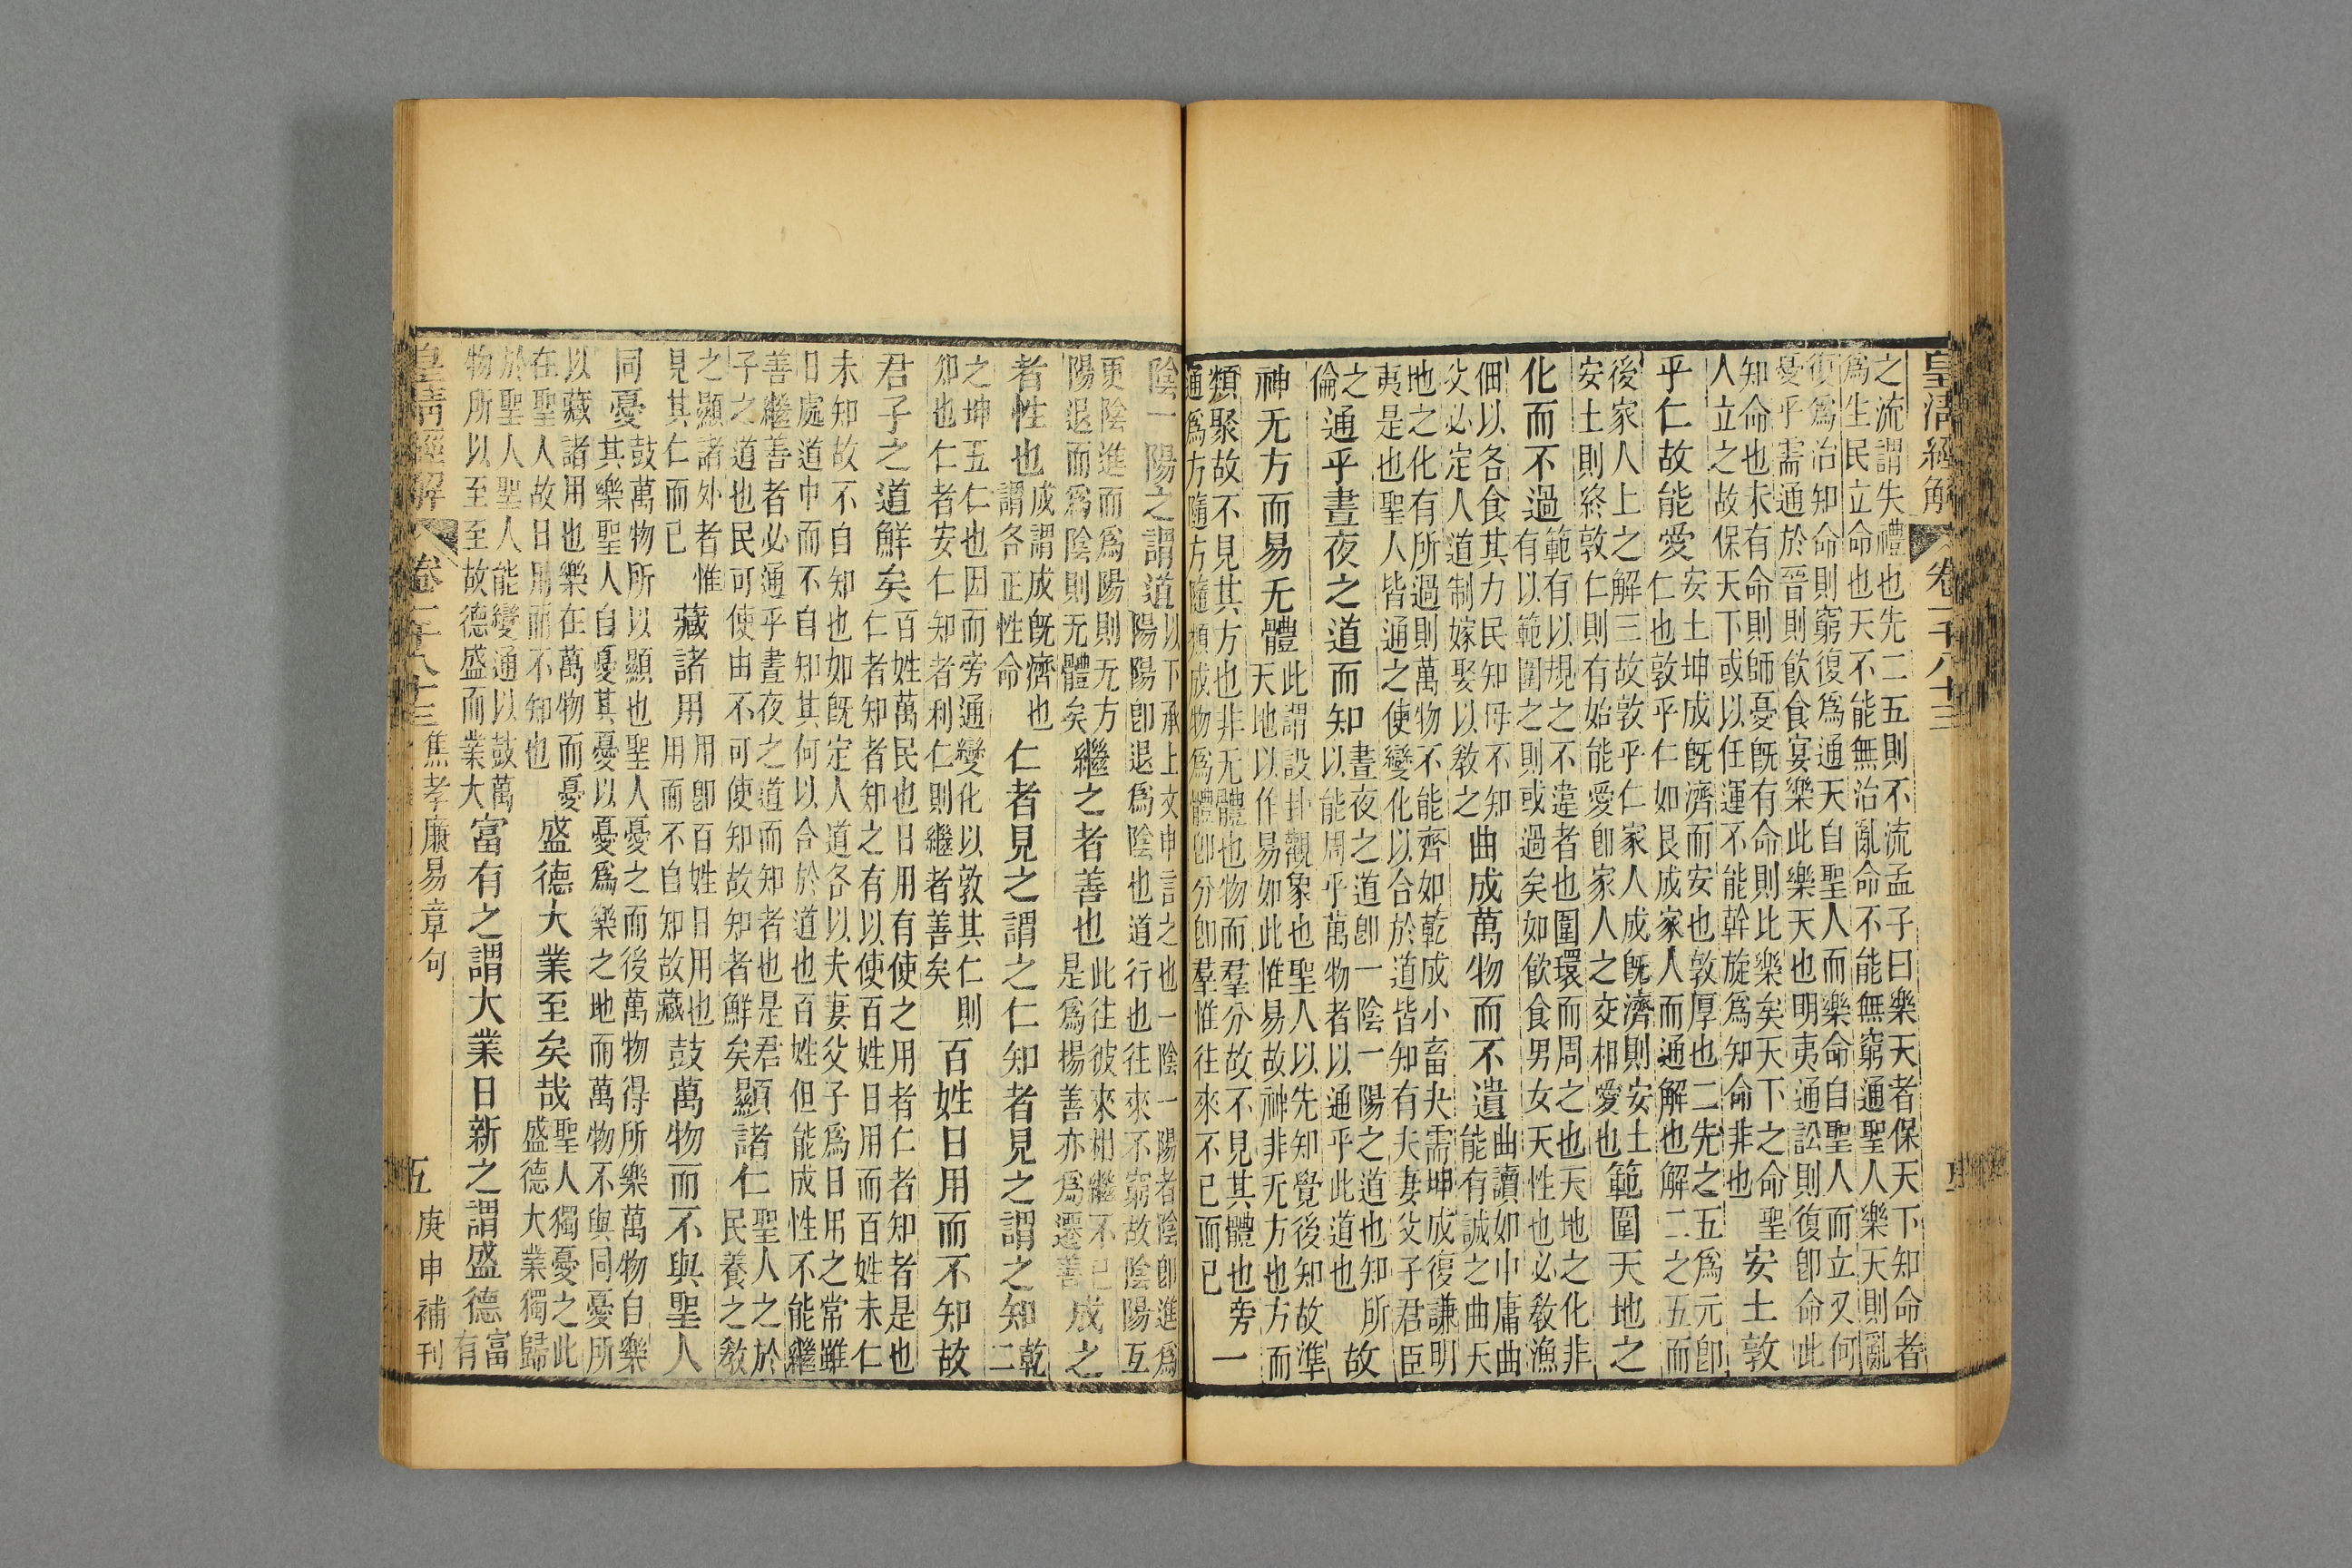 皇清經解 卷一千八十三
之流謂失禮也先二五則不流孟子曰樂天者保天下知命者
爲生民立命也天不能無治亂命不能無窮通聖人樂天則亂
復爲治知命則窮復爲通天自聖人而樂命自聖人而立又何
憂乎需通於晉則飲食宴樂此樂天也明夷通訟則復卽命此
知命也未有命則師憂既有命則比樂矣天下之命聖
人立之故保天下或以任運不能幹旋爲知命非也
安土敦
乎仁故能愛
安土坤成既濟而安也敦厚也二先之五爲元卽
仁也敦乎仁如艮成家人而通解也解二之五而
後家人上之解三故敦乎仁家人成既濟則安土
安土則終敦仁則有始能愛卽家人之交相愛也
範圍天地之
化而不過
範有以規之不違者也圍環而周之也天地之化非
有以範圍之則或過矣如飲食男女天性也必教漁
佃以各食其力民知母不知
父必定人道制嫁娶以教之
曲成萬物而不遺
曲讀如中庸曲
能有誠之曲天
地之化有所過則萬物不能齊如乾成小畜夬需坤成復謙明
夷是也聖人皆通之使變化以合於道皆知有夫妻父子君臣
之
倫
通乎晝夜之道而知
晝夜之道卽一陰一陽之道也知所
以能周乎萬物者以通乎此道也
故
神无方而易无體
此謂設卦觀象也聖人以先知覺後知故準
天地以作易如此惟易故神非无方也方而
類聚故不見其方也非无體也物而羣分故不見其體也旁
通爲方隨方隨類成物爲體卽分卽羣惟往來不已而已
一
陰一陽之謂道
以下承上文申言之也一陰一陽者陰卽進爲
陽陽卽退爲陰也道行也往來不窮故陰陽互
更陰進而爲陽則无方
陽退而爲陰則无體矣
繼之者善也
此往彼來相繼不已
是爲揚善亦爲遷善
成之
者性也
成謂成既濟也
謂各正性命
仁者見之謂之仁知者見之謂之知
乾
二
之坤五仁也因而旁通變化以敦其仁則
卽也仁者安仁知者利仁則繼者善矣
百姓日用而不知故
君子之道鮮矣
百姓萬民也日用有使之用者仁者知者是也
仁者知者知之有以使百姓日用而百姓未仁
未知故不自知也如既定人道各以夫妻父子爲日用之常雖
日處道中而不自知其何以合於道也百姓但能成性不能繼
善繼善者必通乎晝夜之道而知者也是君
子之道也民可使由不可使知故知者鮮矣
顯諸仁
聖人之於
民養之教
之顯諸外者惟
見其仁而已
藏諸用
用卽百姓日用也
用而不自知故藏
鼓萬物而不與聖人
同憂
鼓萬物所以顯也聖人憂之而後萬物得所樂萬物自樂
其樂聖人自憂其憂以憂爲樂之地而萬物不與同憂所
以藏諸用也樂在萬物而憂
在聖人故日用而不知也
盛德大業至矣哉
聖人獨憂之此
盛德大業獨歸
於聖人聖人能變通以鼓萬
物所以至至故德盛而業大
富有之謂大業日新之謂盛德
富
有
皇清經解 卷一千八十三 焦孝廉易章句 五 庚申補刊